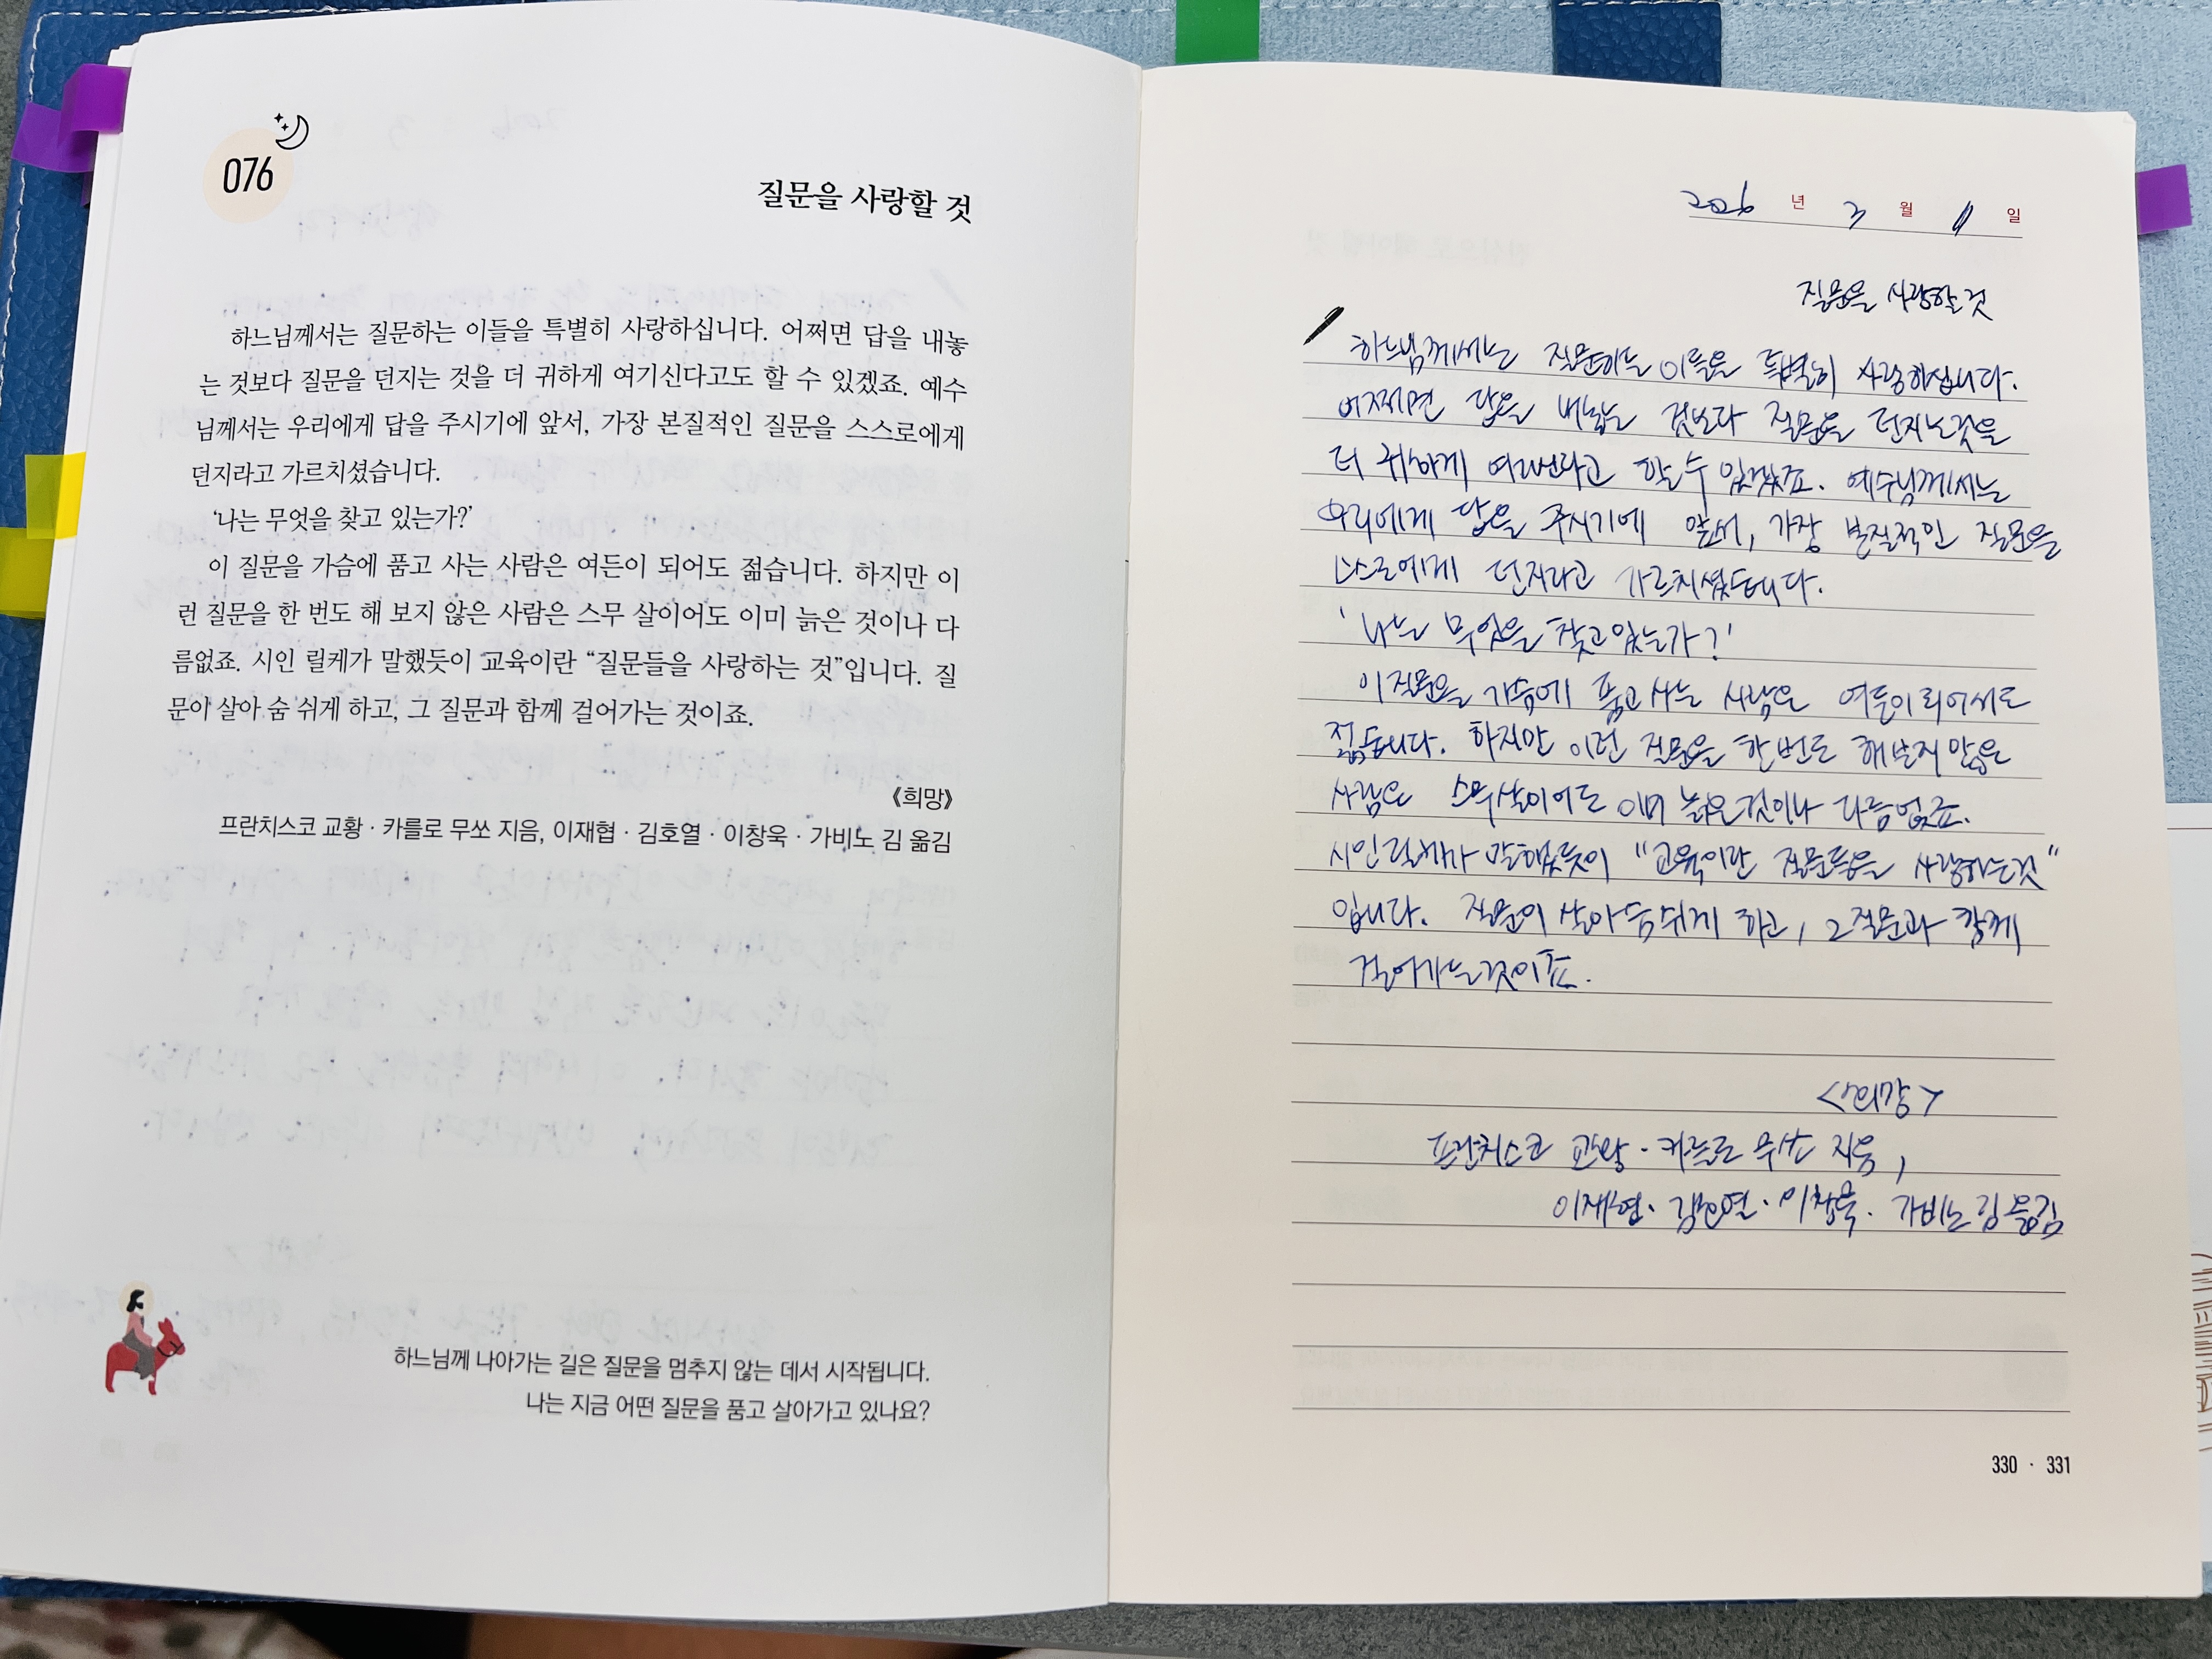 076
질문을 사랑할 것
하느님께서는 질문하는 이들을 특별히 사랑하십니다. 어쩌면 답을 내놓
는 것보다 질문을 던지는 것을 더 귀하게 여기신다고도 할 수 있겠죠. 예수
님께서는 우리에게 답을 주시기에 앞서, 가장 본질적인 질문을 스스로에게
던지라고 가르치셨습니다.
‘나는 무엇을 찾고 있는가?’
이 질문을 가슴에 품고 사는 사람은 여든이 되어도 젊습니다. 하지만 이
런 질문을 한 번도 해 보지 않은 사람은 스무 살이어도 이미 늙은 것이나 다
름없죠. 시인 릴케가 말했듯이 교육이란 “질문들을 사랑하는 것”입니다. 질
문이 살아 숨 쉬게 하고, 그 질문과 함께 걸어가는 것이죠.
《희망》
프란치스코 교황 · 카를로 무쏘 지음, 이재협 · 김호열 · 이창욱 · 가비노 김 옮김
하느님께 나아가는 길은 질문을 멈추지 않는 데서 시작됩니다.
나는 지금 어떤 질문을 품고 살아가고 있나요?
2026 년 3 월 일
질문을 사랑할 것
하느님께서는 질문하는 이들을 특별히 사랑하십니다.
어쩌면 답을 내놓는 것보다 질문을 던지는것을
더 귀하게 할 수 있겠죠. 예수님께서는
우리에게 답을 주시기에 앞서, 가장 본질적인 질문을
스스로에게 던지라고 가르치셨습니다.
'나는 무엇을 찾고있는가?'
이질문을 가슴에 품고사는 사람은 여든이
젊습니다. 하지만 이런 질문을 한번도 해보지 않은
사람은 스무살이어도 이미 늙은것이나 다름없죠.
시인릴케가 말했듯이 "교육이란 질문들을 사랑하는것"
입니다. 질문이 살아숨쉬게 하고, 그질문과 함께
걸어가는것이죠.
<희망>
프란치스코 교황 · 카를로 무쏘 지음,
이재협 · 김호열 · 이창욱 · 가비노 김 옮김
330 · 331